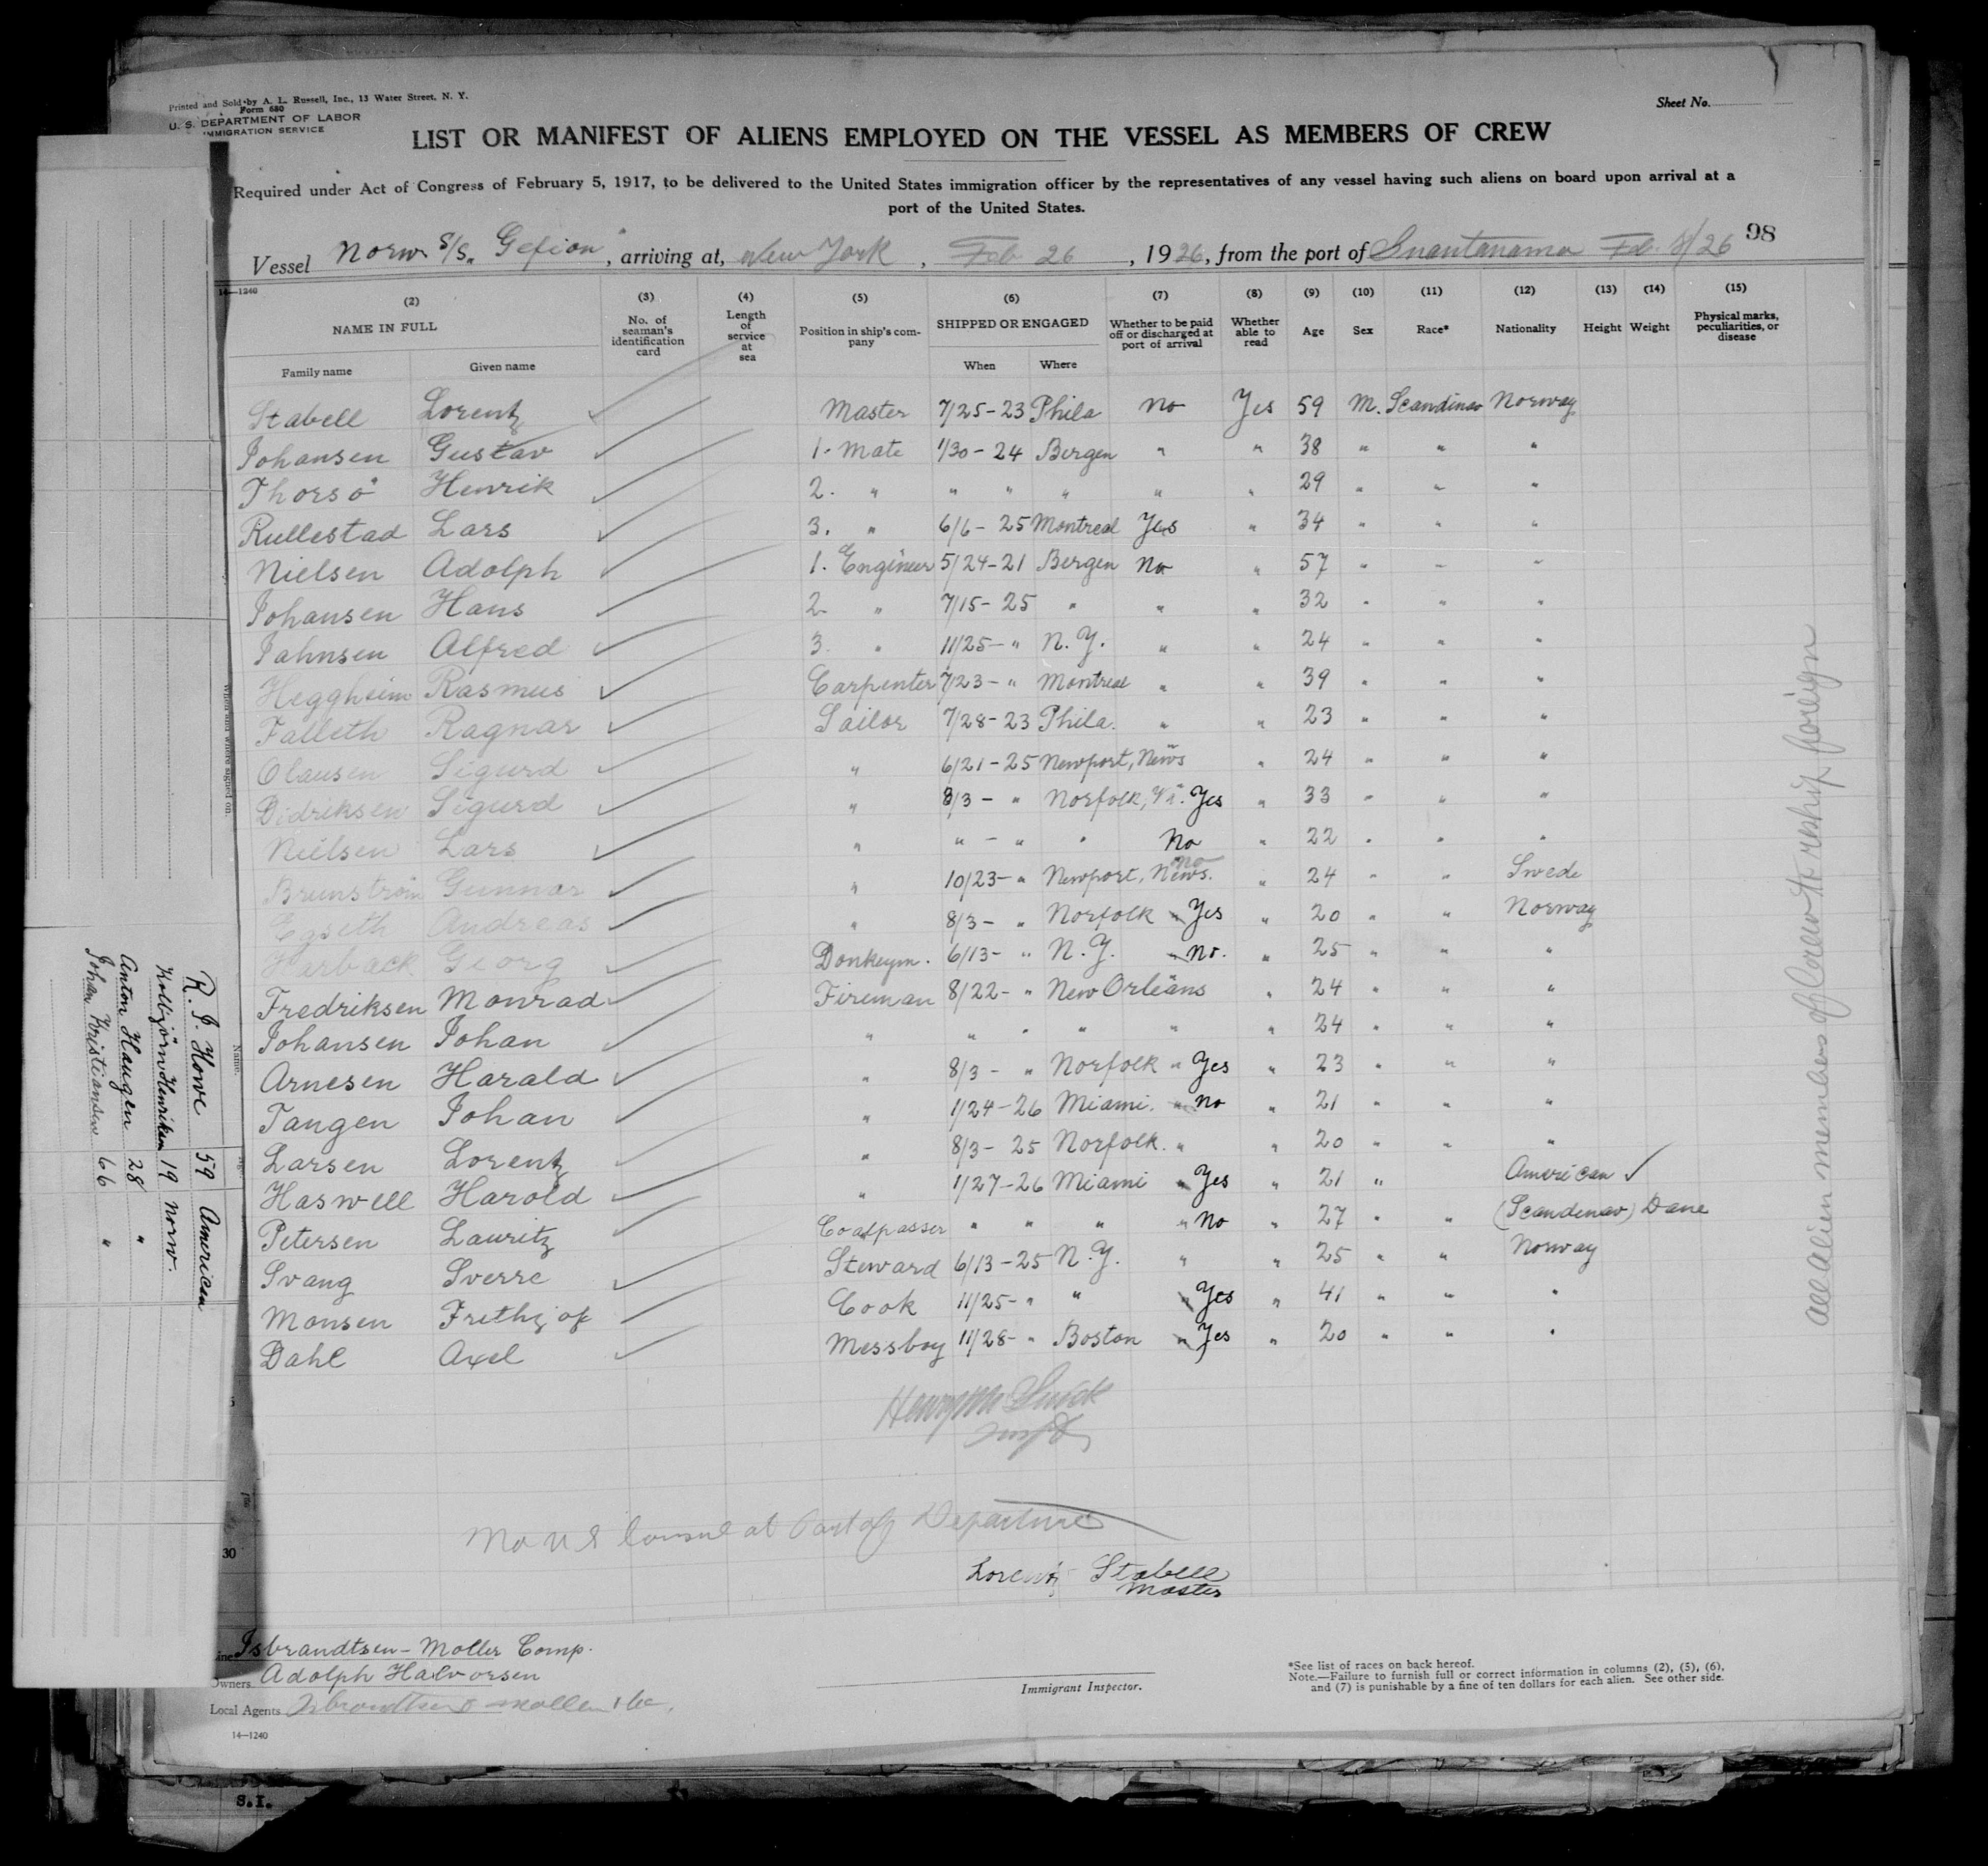 Printed and Sold by A. L. Russell, Inc., 13 Water Street, N. Y.
Form 680
U. S. DEPARTMENT OF LABOR
IMMIGRATION SERVICE
Sheet No.
LIST OR MANIFEST OF ALIENS EMPLOYED ON THE VESSEL AS MEMBERS OF CREW
Required under Act of Congress of February 5, 1917, to be delivered to the United States immigration officer by the representatives of any vessel having such aliens on board upon arrival at a
port of the United States.
Vessel Norw. S/S. "Gefion", arriving at, New York, Feb 26, 1926, from the port of Guantanamo Feb. /26 98
14—1240
(2) (3) (4) (5) (6) (7) (8) (9) (10) (11) (12) (13) (14) (15)
NAME IN FULL No. of seaman's identification card Length of service at sea Position in ship's company SHIPPED OR ENGAGED Whether to be paid off or discharged at port of arrival Whether able to read Age Sex Race* Nationality Height Weight Physical marks, peculiarities, or disease
Family name Given name When Where
Stabell Lorentz Master 7/25-23 Phila no Yes 59 M. Scandinav Norway
Johansen Gustav 1. Mate 1/30-24 Bergen " " 38 " " "
Thorsö Henrik 2. " " " " " " 29 " " "
Rullestad Lars 3. " 6/6-25 Montreal Yes " 34 " " "
Nielsen Adolph 1. Engineer 5/24-21 Bergen No " 57 " " "
Johansen Hans 2. " 7/15-25 " " " 32 " " "
Jahnsen Alfred 3. " 11/25-" N.Y. " " 24 " " "
Heggheim Rasmus Carpenter 7/23-" Montreal " " 39 " " "
Falleth Ragnar Sailor 7/28-23 Phila. " " 23 " " "
Olausen Sigurd " 6/21-25 Newport, News " " 24 " " "
Didriksen Sigurd " 8/3-" Norfolk, Va. Yes " 33 " " "
Nielsen Lars " "-" " No " 22 " " "
Brunström Gunnar " 10/23-" Newport, News. no " 24 " " Swede
Egseth Andreas " 8/3-" Norfolk " Yes " 20 " " Norway
Harback Georg Donkeym. 6/13-" N.Y. " no. " 25 " " "
Fredriksen Monrad Fireman 8/22-" New Orleans " " 24 " " "
Johansen Johan " " " " " " 24 " " "
Arnesen Harald " 8/3-" Norfolk " Yes " 23 " " "
Tangen Johan " 1/24-26 Miami. " no " 21 " " "
Larsen Lorentz " 8/3-25 Norfolk. " " 20 " " "
Haswell Harold " 1/27-26 Miami " Yes " 21 " American ✓
Petersen Lauritz Coalpasser " " " " No " 27 " " (Scandenav) Dane
Svang Sverre Steward 6/13-25 N.Y. " " 25 " " Norway
Monsen Frithjof Cook 11/25-" " " Yes " 41 " " "
Dahl Axel Messboy 11/28-" Boston " Yes " 20 " " "
All Alien members of Crew to reship foreign
When and where signed on.
Name.
R. J. Howe 59 American
Kolbjörn Henriksen 19 norw.
Anton Haugen 28 "
Johan Kristiansen 66 "
No U S Consul at Port of Departure
30
Lorentz Stabell
Master
Line Isbrandtsen-Moller Comp.
Owners Adolph Halvorsen
Local Agents Isbrandtsen Moller & Co.
14—1240
Immigrant Inspector.
*See list of races on back hereof.
Note.—Failure to furnish full or correct information in columns (2), (5), (6),
and (7) is punishable by a fine of ten dollars for each alien. See other side.
S.I.